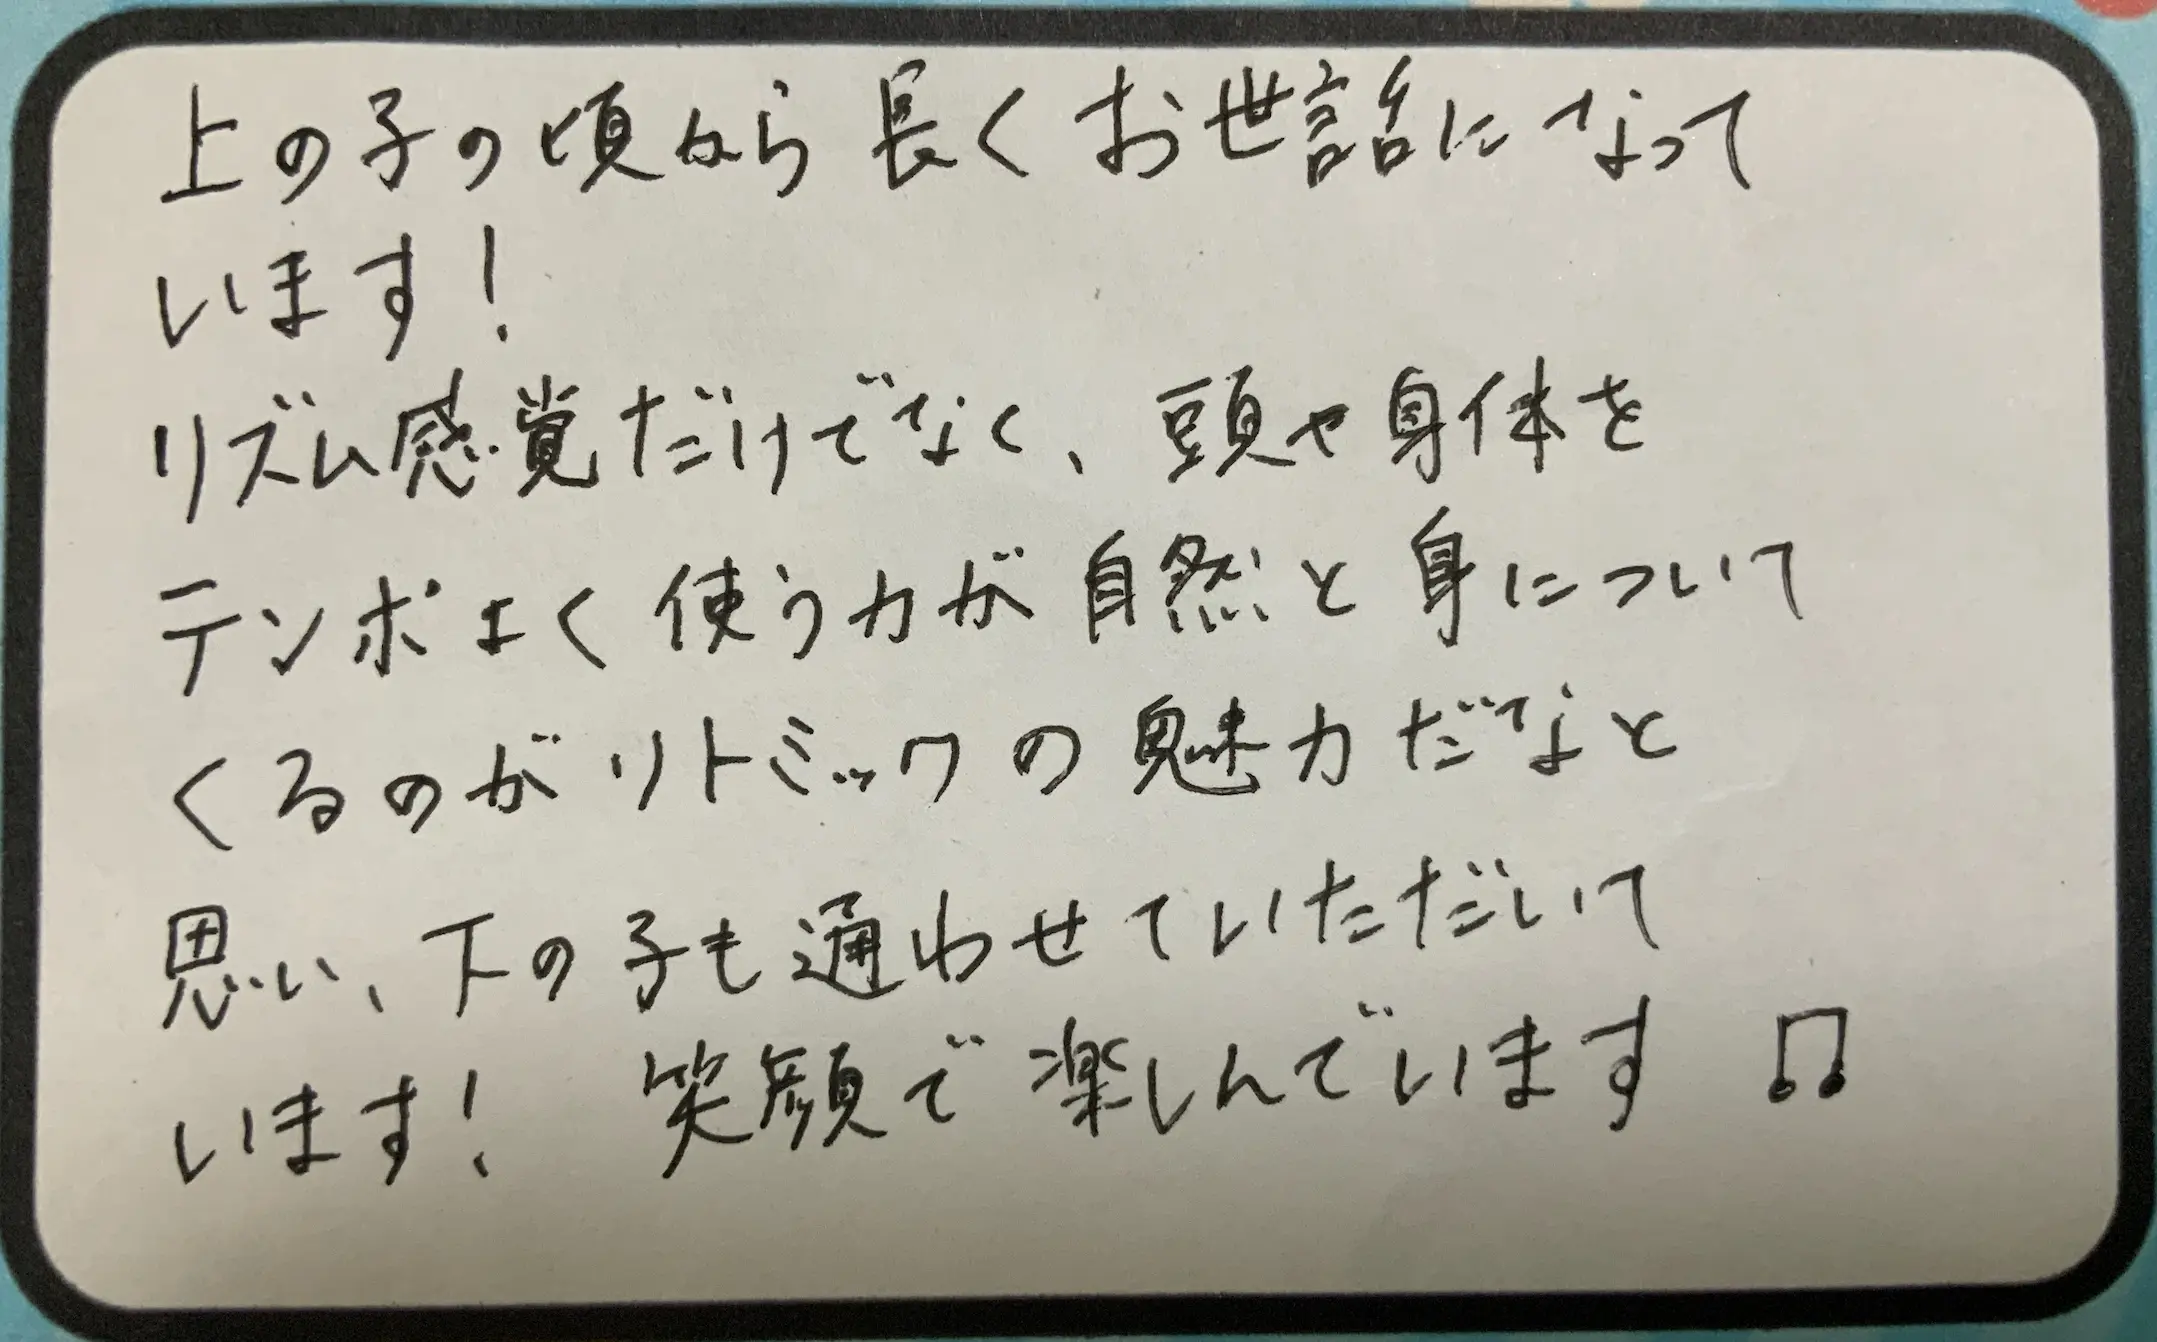 上の子の頃から長くお世話になって
います!
リズム感覚だけでなく、頭や身体を
テンポよく使う力が自然と身について
くるのがリトミックの魅力だなと
思い、下の子も通わせていただいて
います! 笑顔で楽しんでいます ♫